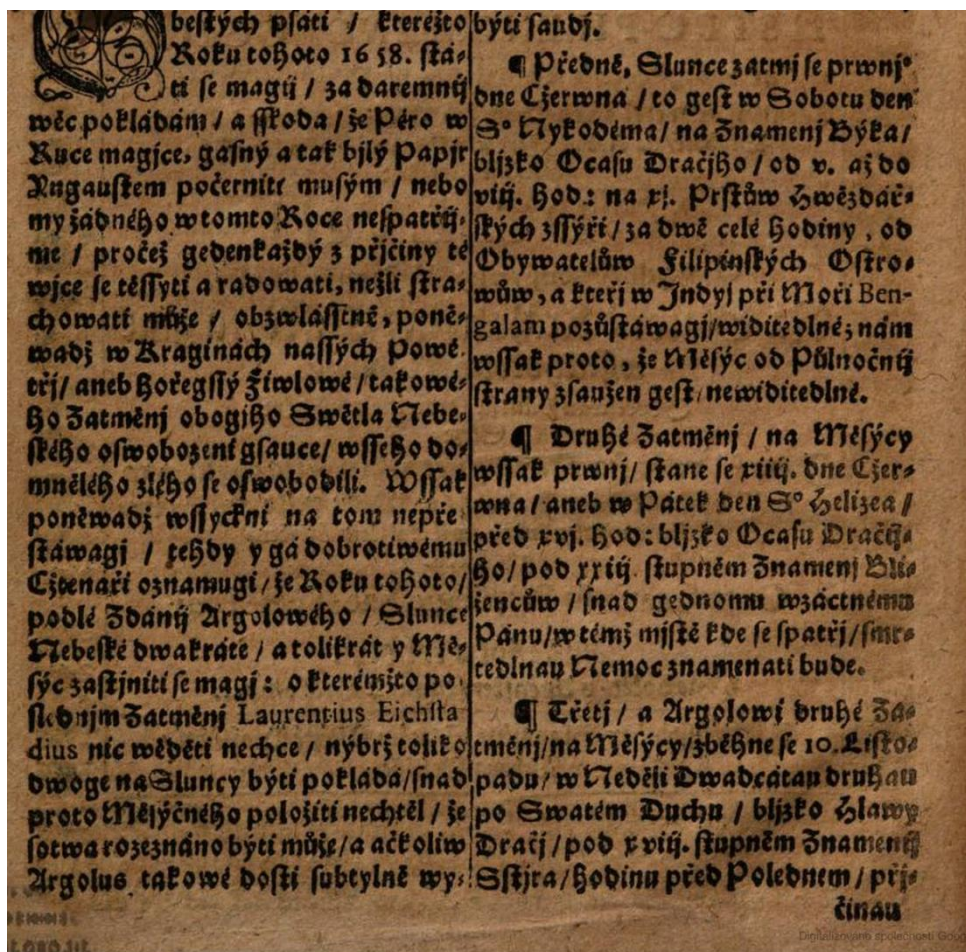 beských psáti / kterežto
Roku tohoto 1658. stá-
ti se magij / za daremnij
wěc pokládám / a sskoda / že Péro w
Ruce magjce, gasný a tak bjlý Papjr
Jngaustem počerniti musým / nebo
my žádného w tomto Roce nespatřij-
me / pročež gedenkaždý z přjčiny té
wjce se těssyti a radowati, nežli stra-
chowati může / obzwlásstně, poně-
wadž w Kraginách nassých Powě
třj / aneb hořegssý Žiwlowé / takowé-
ho Zatměnj obogjho Swětla Nebe-
ského oswobozeni gsauce / wsseho do-
mnělého zlého se oswobodili. Wssak
poněwadž wssyckni na tom nepře
stáwagj / tehdy y gá dobrotiwému
Cžtenáři oznamugi / že Roku tohoto /
podlé Zdánij Argolowého / Slunce
Nebeské dwakráte / a tolikrát y Mě-
sýc zastjniti se magj : o kterémžto po
slednjm Zatměnj Laurentius Eichsta
dius nic wěděti nechce / nýbrž toliko
dwoge na Sluncy býti pokládá / snad
proto Měsýčného položiti nechtěl / že
sotwa rozeznáno býti může / a ačkoliw
Argolus takowé dosti subtylně wy-
býti saudj.
¶ Předně, Slunce zatmj se prwnj°
dne Cžerwna / to gest w Sobotu den
S° Nykodéma / na Znamenj Býka /
bljzko Ocasu Dračjho / od v. až do
viij. hod: na xj. Prstůw Hwězdář-
ských zssýři / za dwě celé hodiny, od
Obywatelůw Filipinských Ostro-
wůw, a kteřj w Jndyj při Moři Ben-
galam pozůstáwagj / widitedlné; nám
wssak proto, že Měsýc od Půlnočnij
strany zsaužen gest, newiditedlné.
¶ Druhé Zatměnj / na Měsýcy
wssak prwnj / stane se xiiij. dne Cžer-
wna / aneb w Pátek den S° Helizea /
před xvj. hod: bljzko Ocasu Dračij-
ho / pod xxiij. stupněm Znamenj Bli-
ženců̊w / snad gednomu wzáctnému
Pánu / w témž mjstě kde se spatřj / smr-
tedlnau Nemoc znamenati bude.
¶ Třetj / a Argolowi druhé Za-
tměnj / na Měsýcy / zběhne se 10. Listo-
padu / w Neděli Dwadcátau druhau
po Swatém Duchu / bljzko Hlawy
Dračj / pod xviij. stupněm Znamenij
Sstjra / hodinu před Polednem / přj-
činau
Digitalizováno společností Goog